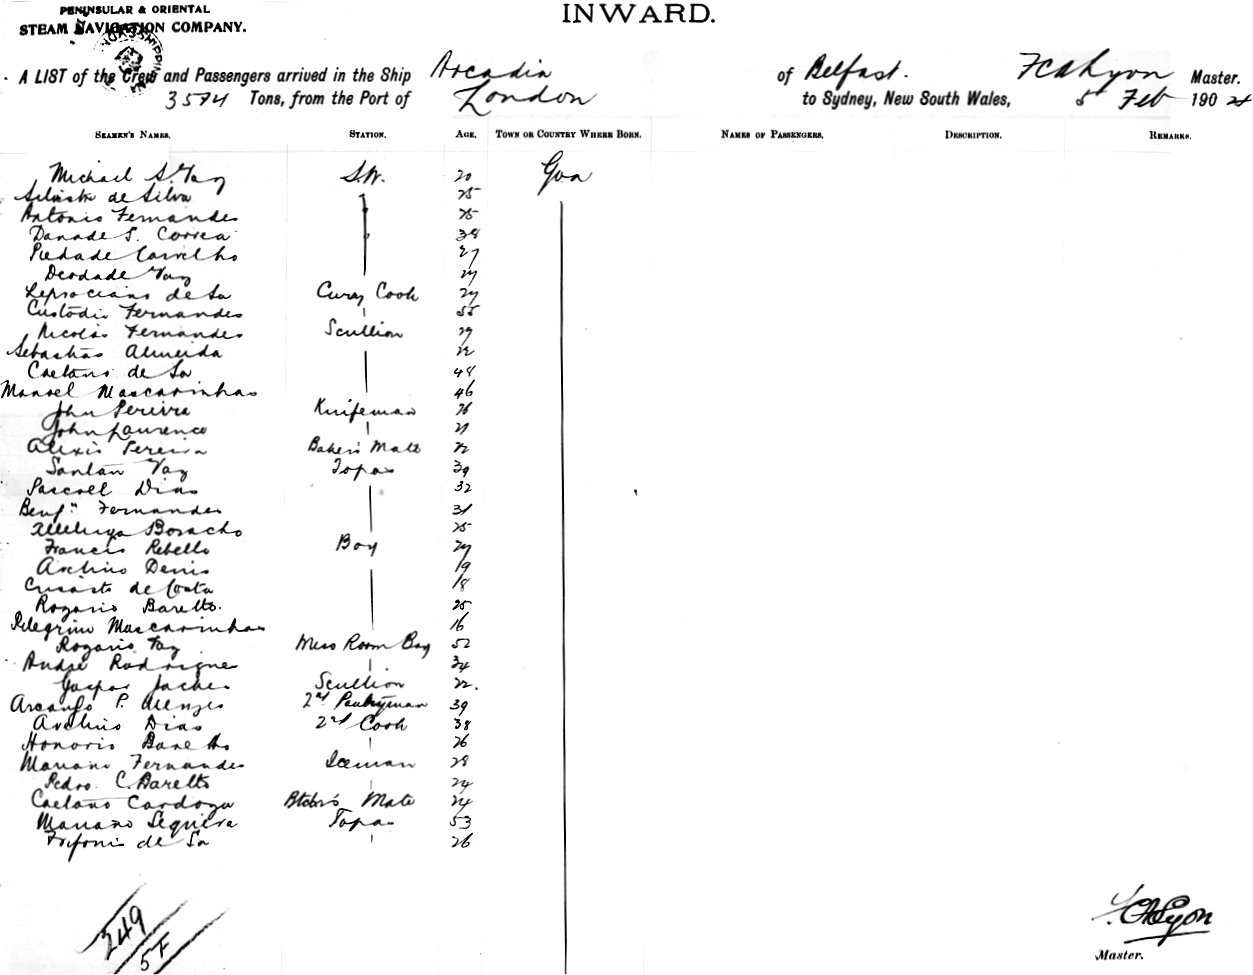 PENINSULAR & ORIENTAL
STEAM NAVIGATION COMPANY.
INWARD.
A LIST of the Crew and Passengers arrived in the Ship Arcadia of Belfast. Master.
3574 Tons, from the Port of London to Sydney, New South Wales, 5 Feb 1904
SEAMEN'S NAMES. STATION. AGE. TOWN OR COUNTRY WHERE BORN. NAMES OF PASSENGERS. DESCRIPTION. REMARKS.
Michael S. Vaz S.W. 20 Goa
de Silva 25
Antonio Fernandes 25
S. Correa 38
Piedade Carvelho 27
Deodade Vaz
de Sa Curry Cook
Custodio Fernandes 55
Nicolas Fernandes Scullion 29
Sebastiao Almeida 22
Caetano de Sa 48
Manoel Mascarinhas 46
John Pereira Knifeman 26
John Laurence 21
Alexis Pereira Baker's Mate 22
Santan Vaz Topas 39
Pascoel Dias 32
Benjn Fernandes 31
Boracho 25
Francis Rebello Boy
Avelino Denis 19
de Costa 18
Rozario Baretto. 25
Pelegrino Mascarinhas 16
Rozario Vaz Mess Room Boy 52
Andre Rodrigues 34
Gaspar Scullion 22.
P. Menzes 2nd Pantryman 39
Avelino Dias 2nd Cook 38
Honorio Baretto 26
Mariano Fernandes Iceman 28
Pedro C. Baretto 24
Caetano Cardoza Mate 24
Mariano Sequiera Topas 53
de Sa 26
249
57
Lyon
Master.